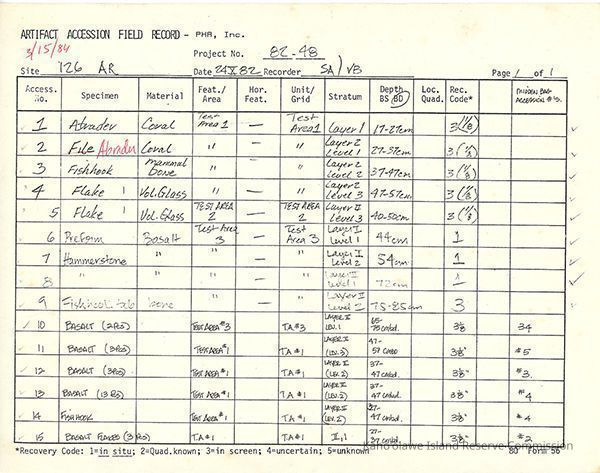 ARTIFACT ACCESSION FIELD RECORD - PHRI, Inc.
3/15/84
Project No. 82-48
Site 126 AR Date 24 X 82 Recorder SA/VB Page 1 of 1
Access. No. Specimen Material Feat./ Area Hor. Feat. Unit/ Grid Stratum Depth BS/BD Loc. Quad. Rec. Code* MIDDEN BAG ACCESSION #'S.
1 Abrader Coral Test Area 1 — Test Area 1 Layer 1 17-27cm 3 (1/8)
2 File Abrader Coral " — " Layer 2 Level 1 27-37cm 3 (1/8)
3 Fishhook Mammal bone " — " Layer 2 Level 2 37-47cm 3 (1/8)
4 Flake 1 Vol. Glass " — " Layer 2 Level 3 47-57cm 3 (1/8)
5 Flake 1 Vol. Glass TEST AREA 2 — TEST AREA 2 Layer II Level 3 40-50cm 3 (1/8)
6 Preform Basalt Test Area 3 — Test Area 3 Layer I Level 1 44cm 1
7 Hammerstone " — Layer I Level 2 54cm 1
8 " " — Layer II Level 1 72cm 1
9 Fishhook tab bone — Layer II Level 2 75-85cm 3
10 BASALT (2 PCS) TEST AREA #3 TA #3 LAYER II LEV. 1 65-75 cmbd. 3 1/8" 34
11 BASALT (3 PCS) TEST AREA #1 TA #1 LAYER II (LEV. 3) 47-57 CMBD 3 1/8" #5
12 BASALT (3 PCS) TEST AREA #1 TA #1 LAYER II (LEV. 2) 37-47 cmbd. 3 1/8" #3
13 BASALT (13 PCS) TEST AREA #1 TA #1 LAYER II (LEV. 2) 37-47 cmbd. 3 1/8" #4
14 FISHHOOK TEST AREA #1 TA #1 LAYER II (LEV. 2) 37-47 cmbd. 3 1/8" #4
15 BASALT FLAKES (3 PCS) TA #1 TA #1 II, 1 27-37 cmbd. 3 1/8" #2
*Recovery Code: 1=in situ; 2=Quad.known; 3=in screen; 4=uncertain; 5=unknown 80 Form 56
Kaho'olawe Island Reserve Commission